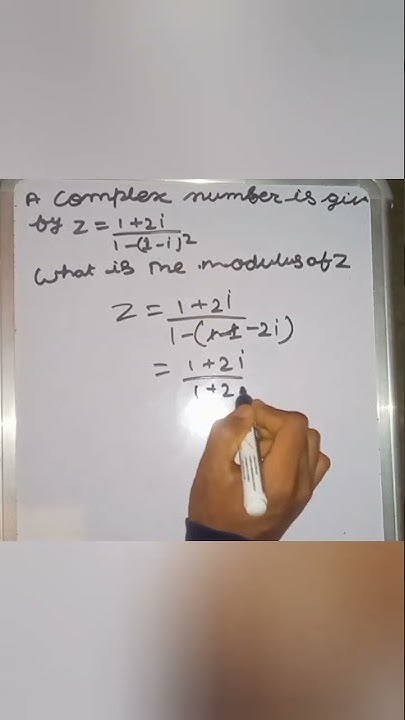 A complex number is giv
by z = 1+2i / 1-(1-i)²
What is the modulus of z
z = 1+2i / 1-(1-1-2i)
= 1+2i / 1+2